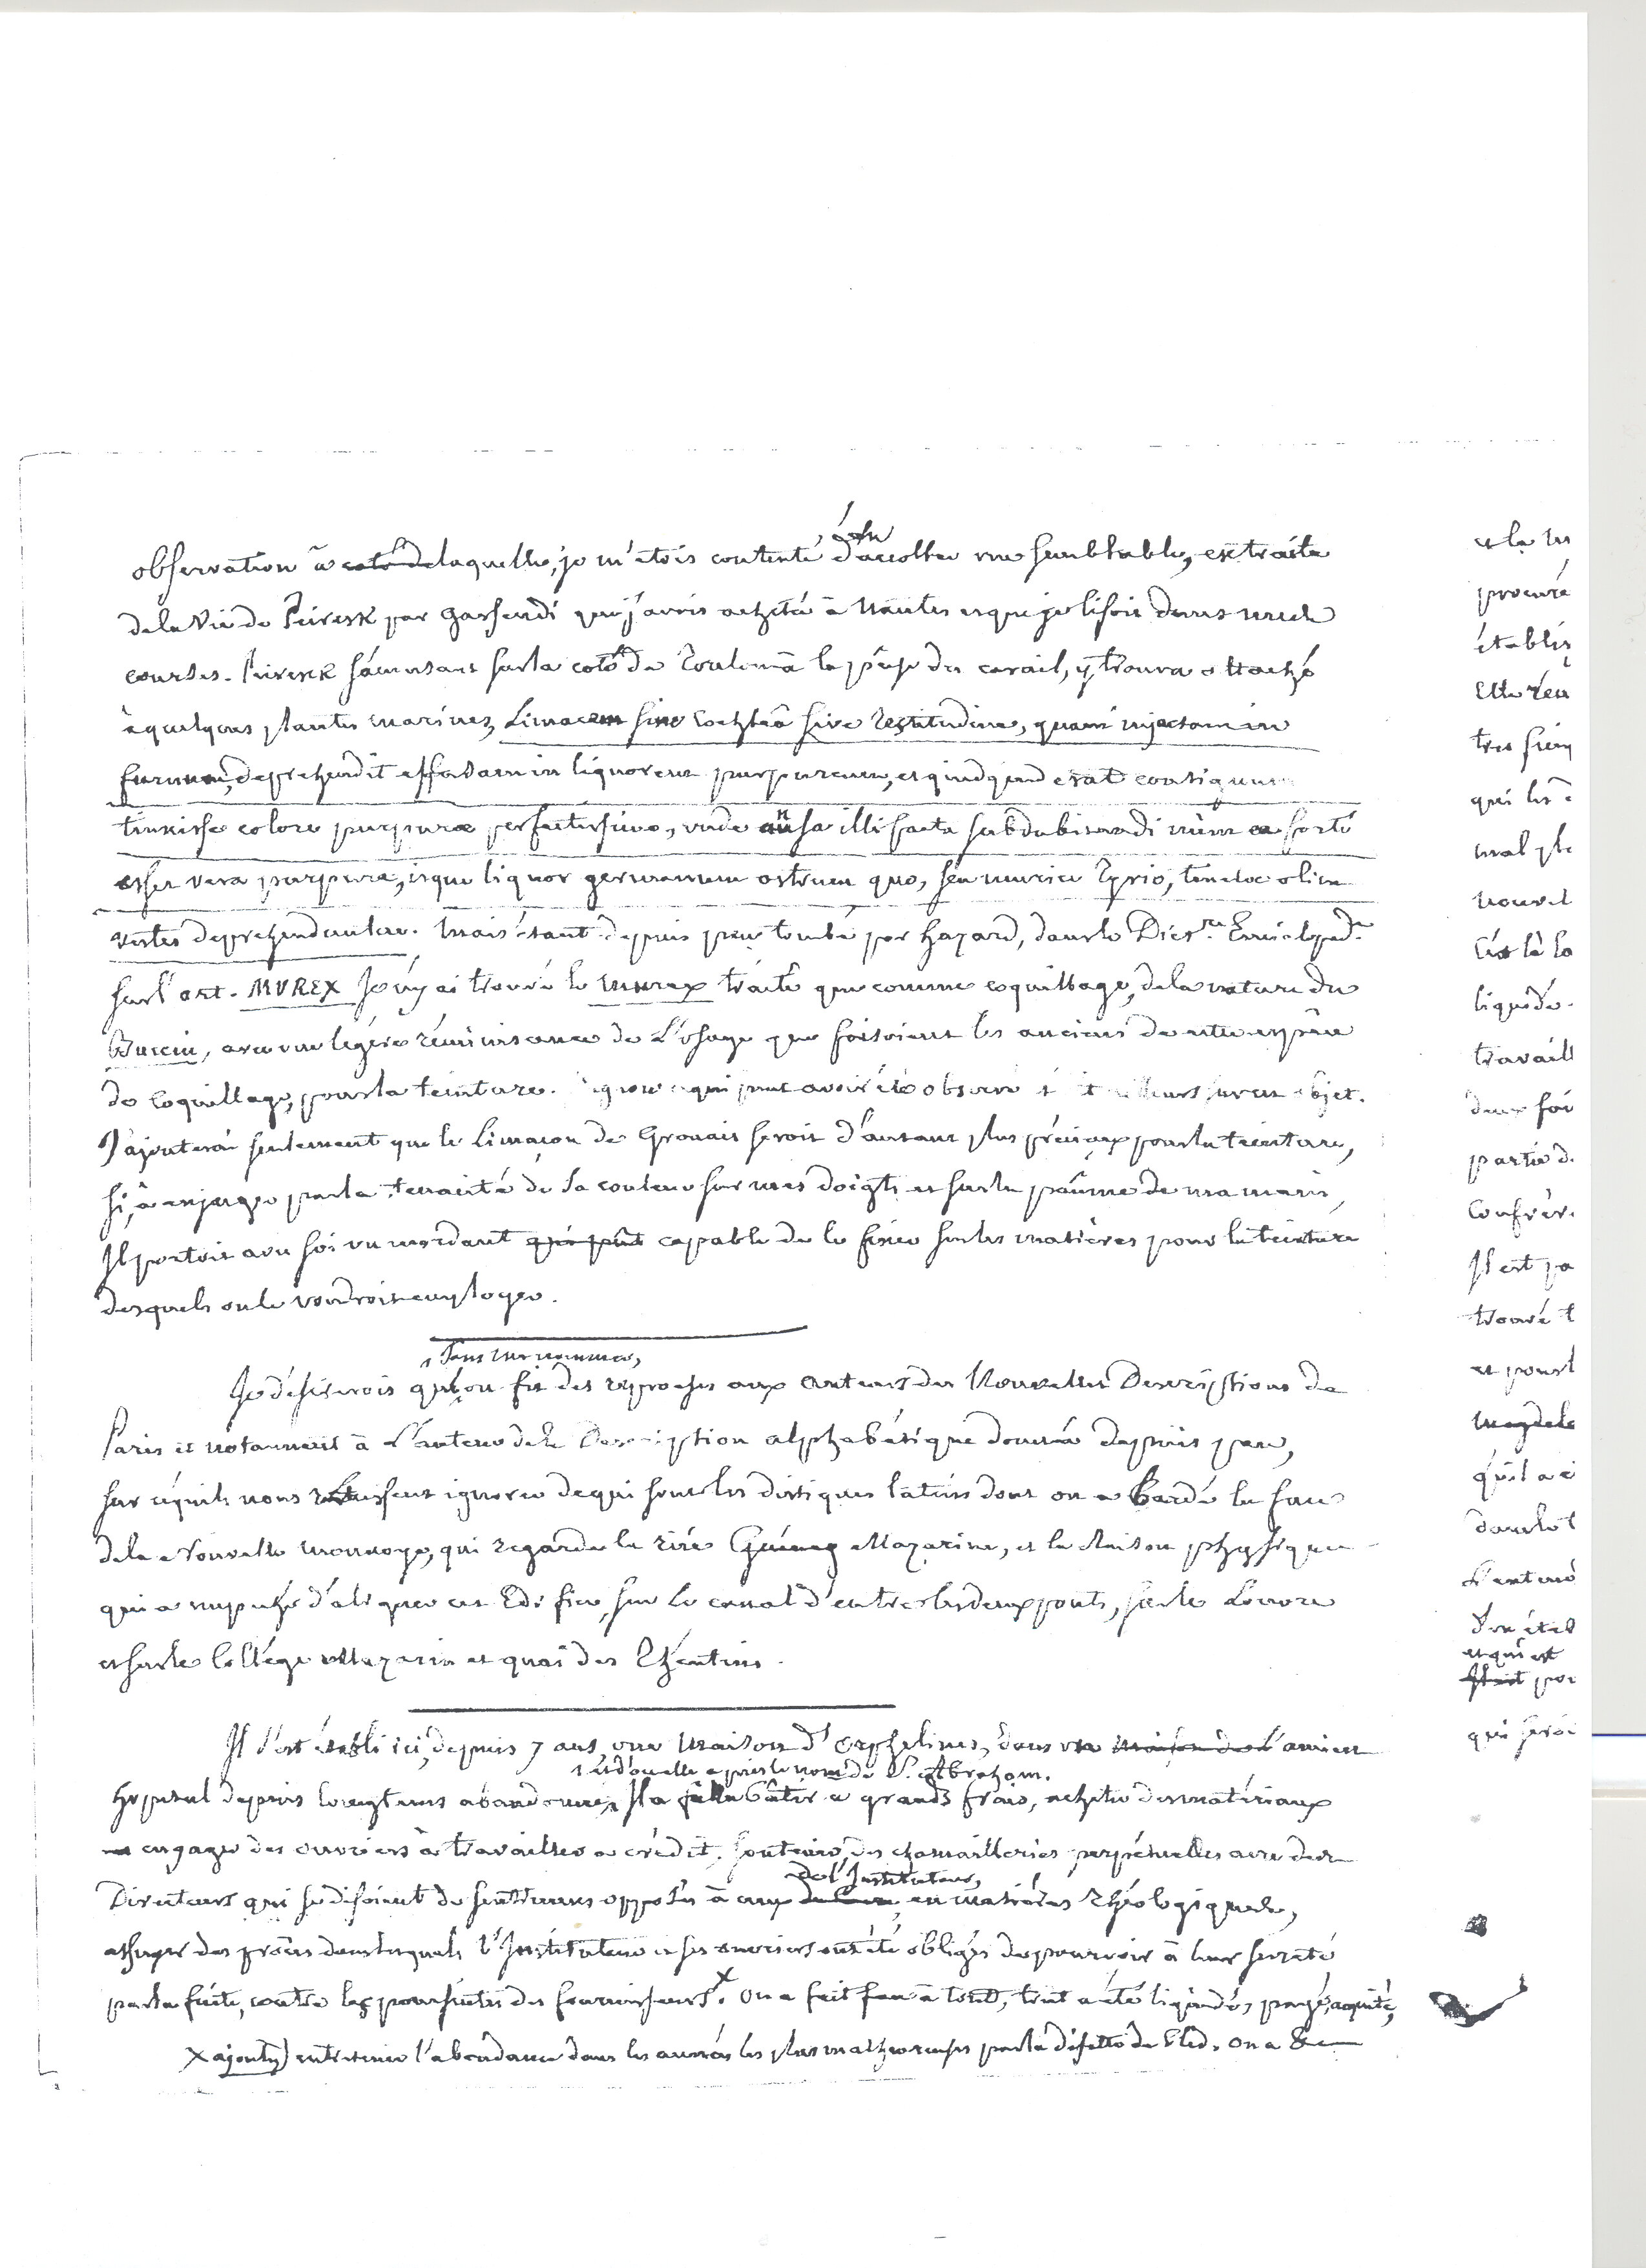 observation à côté de laquelle, je m'étois contenté d'accoller une semblable, extraite
dela Vie de Peiresk par Gassendi que j'avois achetée à Nantes et que je lisois dans mes
courses. Peiresk s'amusant sur la cote de Toulon à la pêche du corail, y trouva attaché
à quelques plantes marines, Limacem sive Cochleâ sive Testitudine, quam injectam in
deprehendit effusam in liquorem purpureum, et quidquid erat contiguum
tinxisse colore purpuræ perfectissimo, unde ansa illi facta subdubitandi nùm ea forte
esset vera purpura, isque liquor germanum ostrum quo, seu murice Tyrio, tinctæ olim
vestes deprehenduntur. Mais étant depuis peu tombé par hazard, dans le Dict.re Encicloped.e
sur l'art. MVREX Je n'y ai trouvé le murex traité que comme coquillage, dela nature du
Buccin, avec une légère réminiscence de L'usage que faisoient les anciens de cette espèce
de Coquillage, pour la teinture. ignore ce qui peut avoir été observé objet.
J'ajouterai seulement que le Limaçon de Groüais seroit d'autant plus précieux pour la teinture,
si, à en juger par la tenacité de sa couleur sur mes doigts et sur la paûme de ma main,
Il portoit avec soi un mordant qui pût capable de le fixer sur les matières pour la teinture
desquels on le voudroit employer.
, sans me nommer,
Je désirerois qu'on fit des reproches aux auteurs des Nouvelles Descriptions de
Paris et nótamment à L'auteur dela Description alphabétique donnée depuis peu,
sur ce qu'ils nous laissent ignorer de qui sont les distiques latins dont on a bardé la face
dela Nouvelle Monnoye, qui regarde la rüe Guénég Mazarine, et la Raison physique
qui a empeché d'aligner cet Edifice, sur le canal d'entre les deux ponts, sur le Louvre
et sur le Collége Mazarin et quai des Théatins.
Il s'est établi ici, depuis 7 ans, une Maison d'Orphelines, dans une maison de L'ancien
, et d'ouelle a pris le nom de S.t Abraham.
Hopital depuis longtems abandonné, Il a fallu bâtir a grands frais, acheter des matériaux
engager des ouvriers à travailler a crédit, soutenir des chamailleries perpétuelles avec des
de l'Instituteur,
Directeurs qui se disoient de sentimens opposés à ceux en matières Théologiques,
essuyer des procès dans lesquels l'Instituteur et ses ouvriers ont été obligés de pourvoir à leur sureté
par la fuite, contre les poursuites des fournisseurs. x On a fait face à tout, tout a été liquidé, payé, aquité,
X ajoutez) entretenir l'abondance dans les années les plus malheureuses par la disette de bled. on a &c
et la
procuré
établis
Elle
qui les
mal
nouvel
C'est là
liquidé.
travaill
deux foi
partie d.
Confrèr.
Il est pa
trouvé t
et pour l
Magdele
qu'il a é
dans le t
L'auteur
et qui est
qui seroi